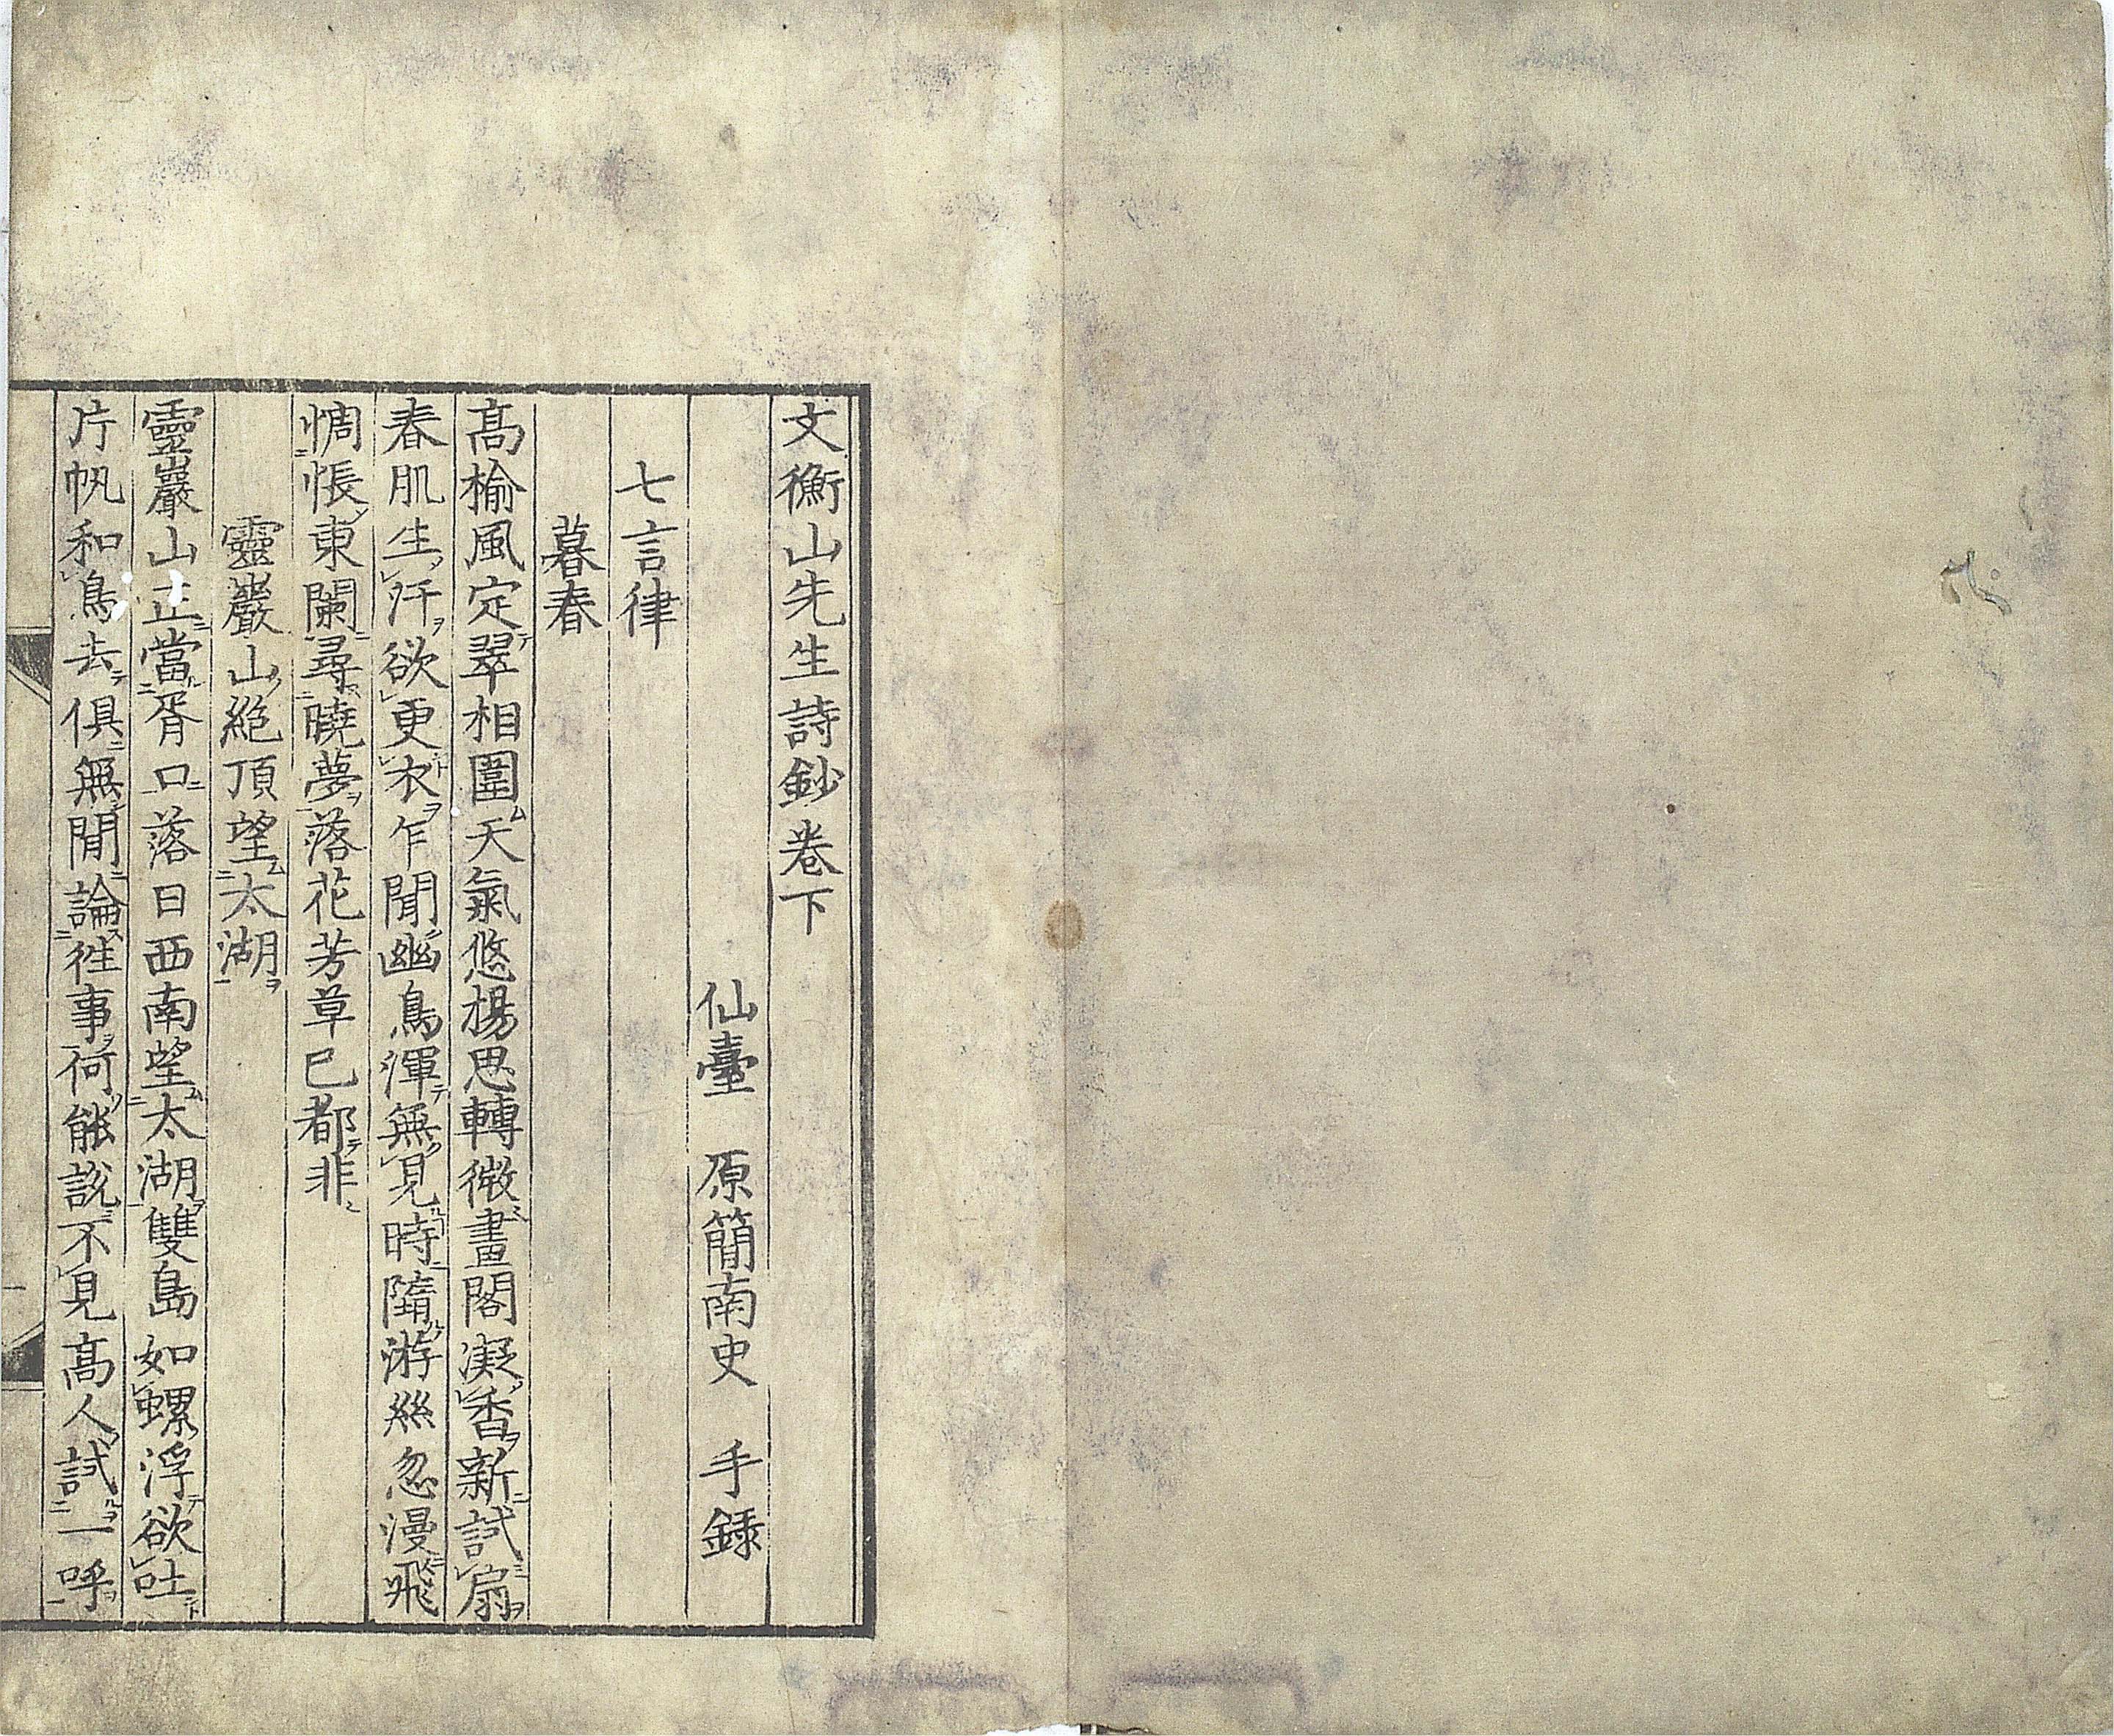 文衡山先生詩鈔卷下
仙臺　原簡南史　手錄
七言律
暮春
高楡風定翠相圍天氣悠揚思轉微畫閣凝香新試扇
春肌生汗欲更衣乍聞幽鳥渾無見時墮游絲忽漫飛
惆悵東闌尋曉夢落花芳草已都非
靈巖山絶頂望太湖
靈巖山正當胥口落日西南望太湖雙島如螺浮欲吐
片帆和鳥去俱無閒論往事何能說不見高人試一呼